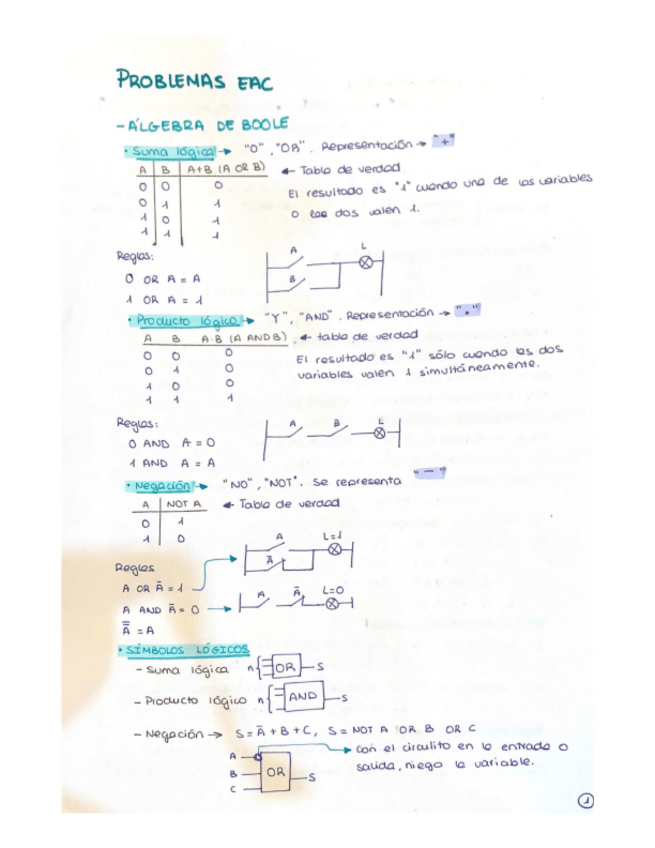 PROBLEMAS EAC
- ÁLGEBRA DE BOOLE
• Suma lógica → "O", "OR". Representación → "+"
A B A+B (A OR B) ← Tabla de verdad
0 0 0
0 1 1
1 0 1
1 1 1
El resultado es "1" cuando una de las variables
o las dos valen 1.
Reglas:
0 OR A = A
1 OR A = 1
A L
B
• Producto lógico → "Y", "AND". Representación → "."
A B A·B (A AND B) ← tabla de verdad
0 0 0
0 1 0
1 0 0
1 1 1
El resultado es "1" sólo cuando las dos
variables valen 1 simultáneamente.
Reglas:
0 AND A = 0
1 AND A = A
A B L
• Negación → "NO", "NOT". Se representa "—"
A NOT A ← Tabla de verdad
0 1
1 0
Reglas
A OR Ā = 1
A AND Ā = 0
A̿ = A
A L=1
Ā
A Ā L=0
• SÍMBOLOS LÓGICOS
- Suma lógica n{ OR S
- Producto lógico n{ AND S
- Negación → S = Ā + B + C, S = NOT A OR B OR C
A
B OR S
C
→ Con el circulito en la entrada o
salida, niego la variable.
1